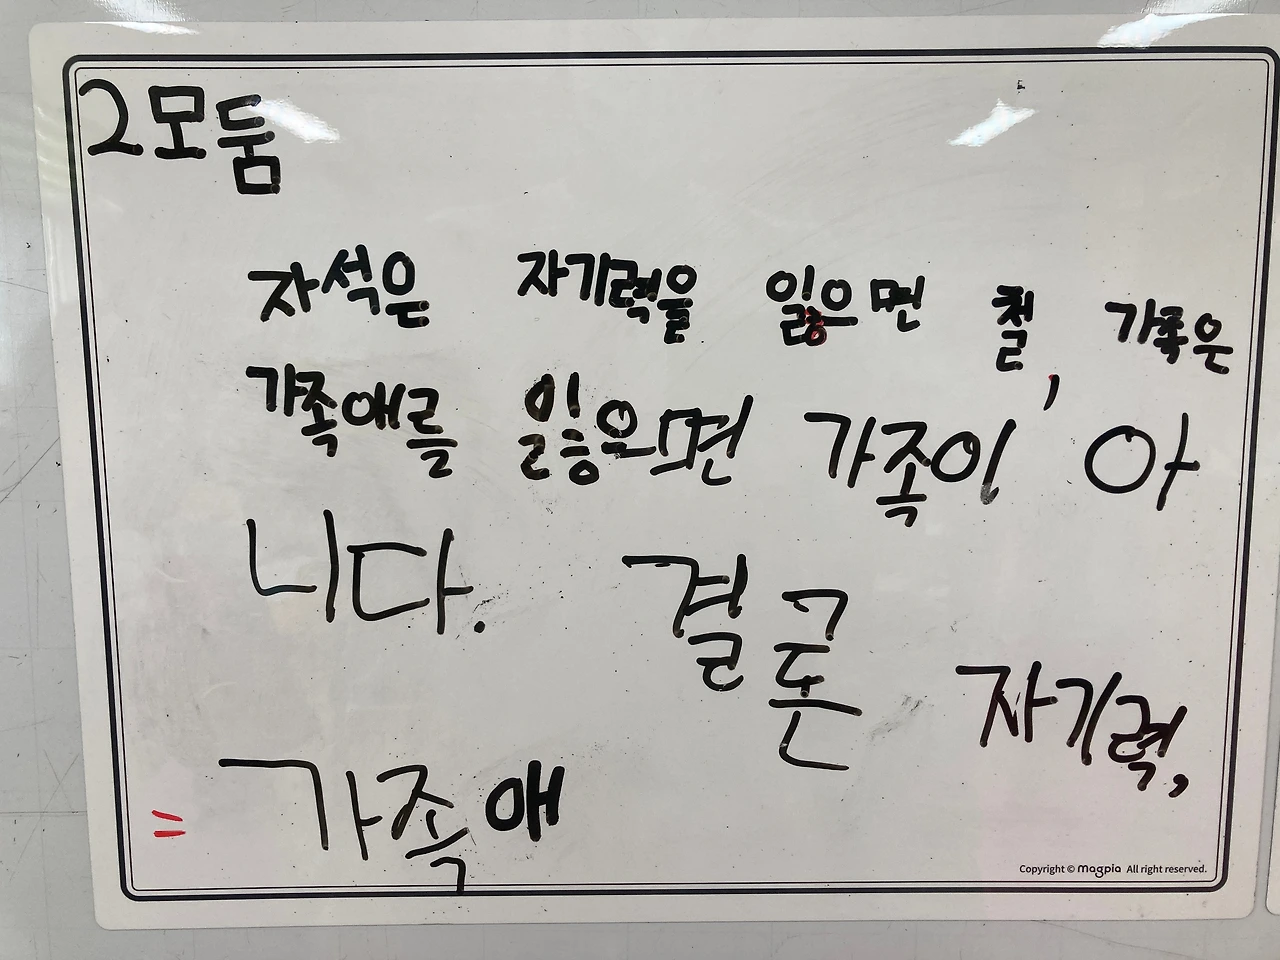 2모둠
자석은 자기력을 잃으면 철, 가족은
가족애를 잃으면 가족이 아
니다. 결론 자기력,
= 가족애
Copyright © magpia All right reserved.